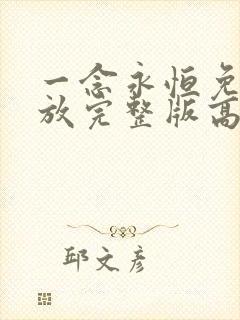 一念永恒免
放完整版高
邱文彦